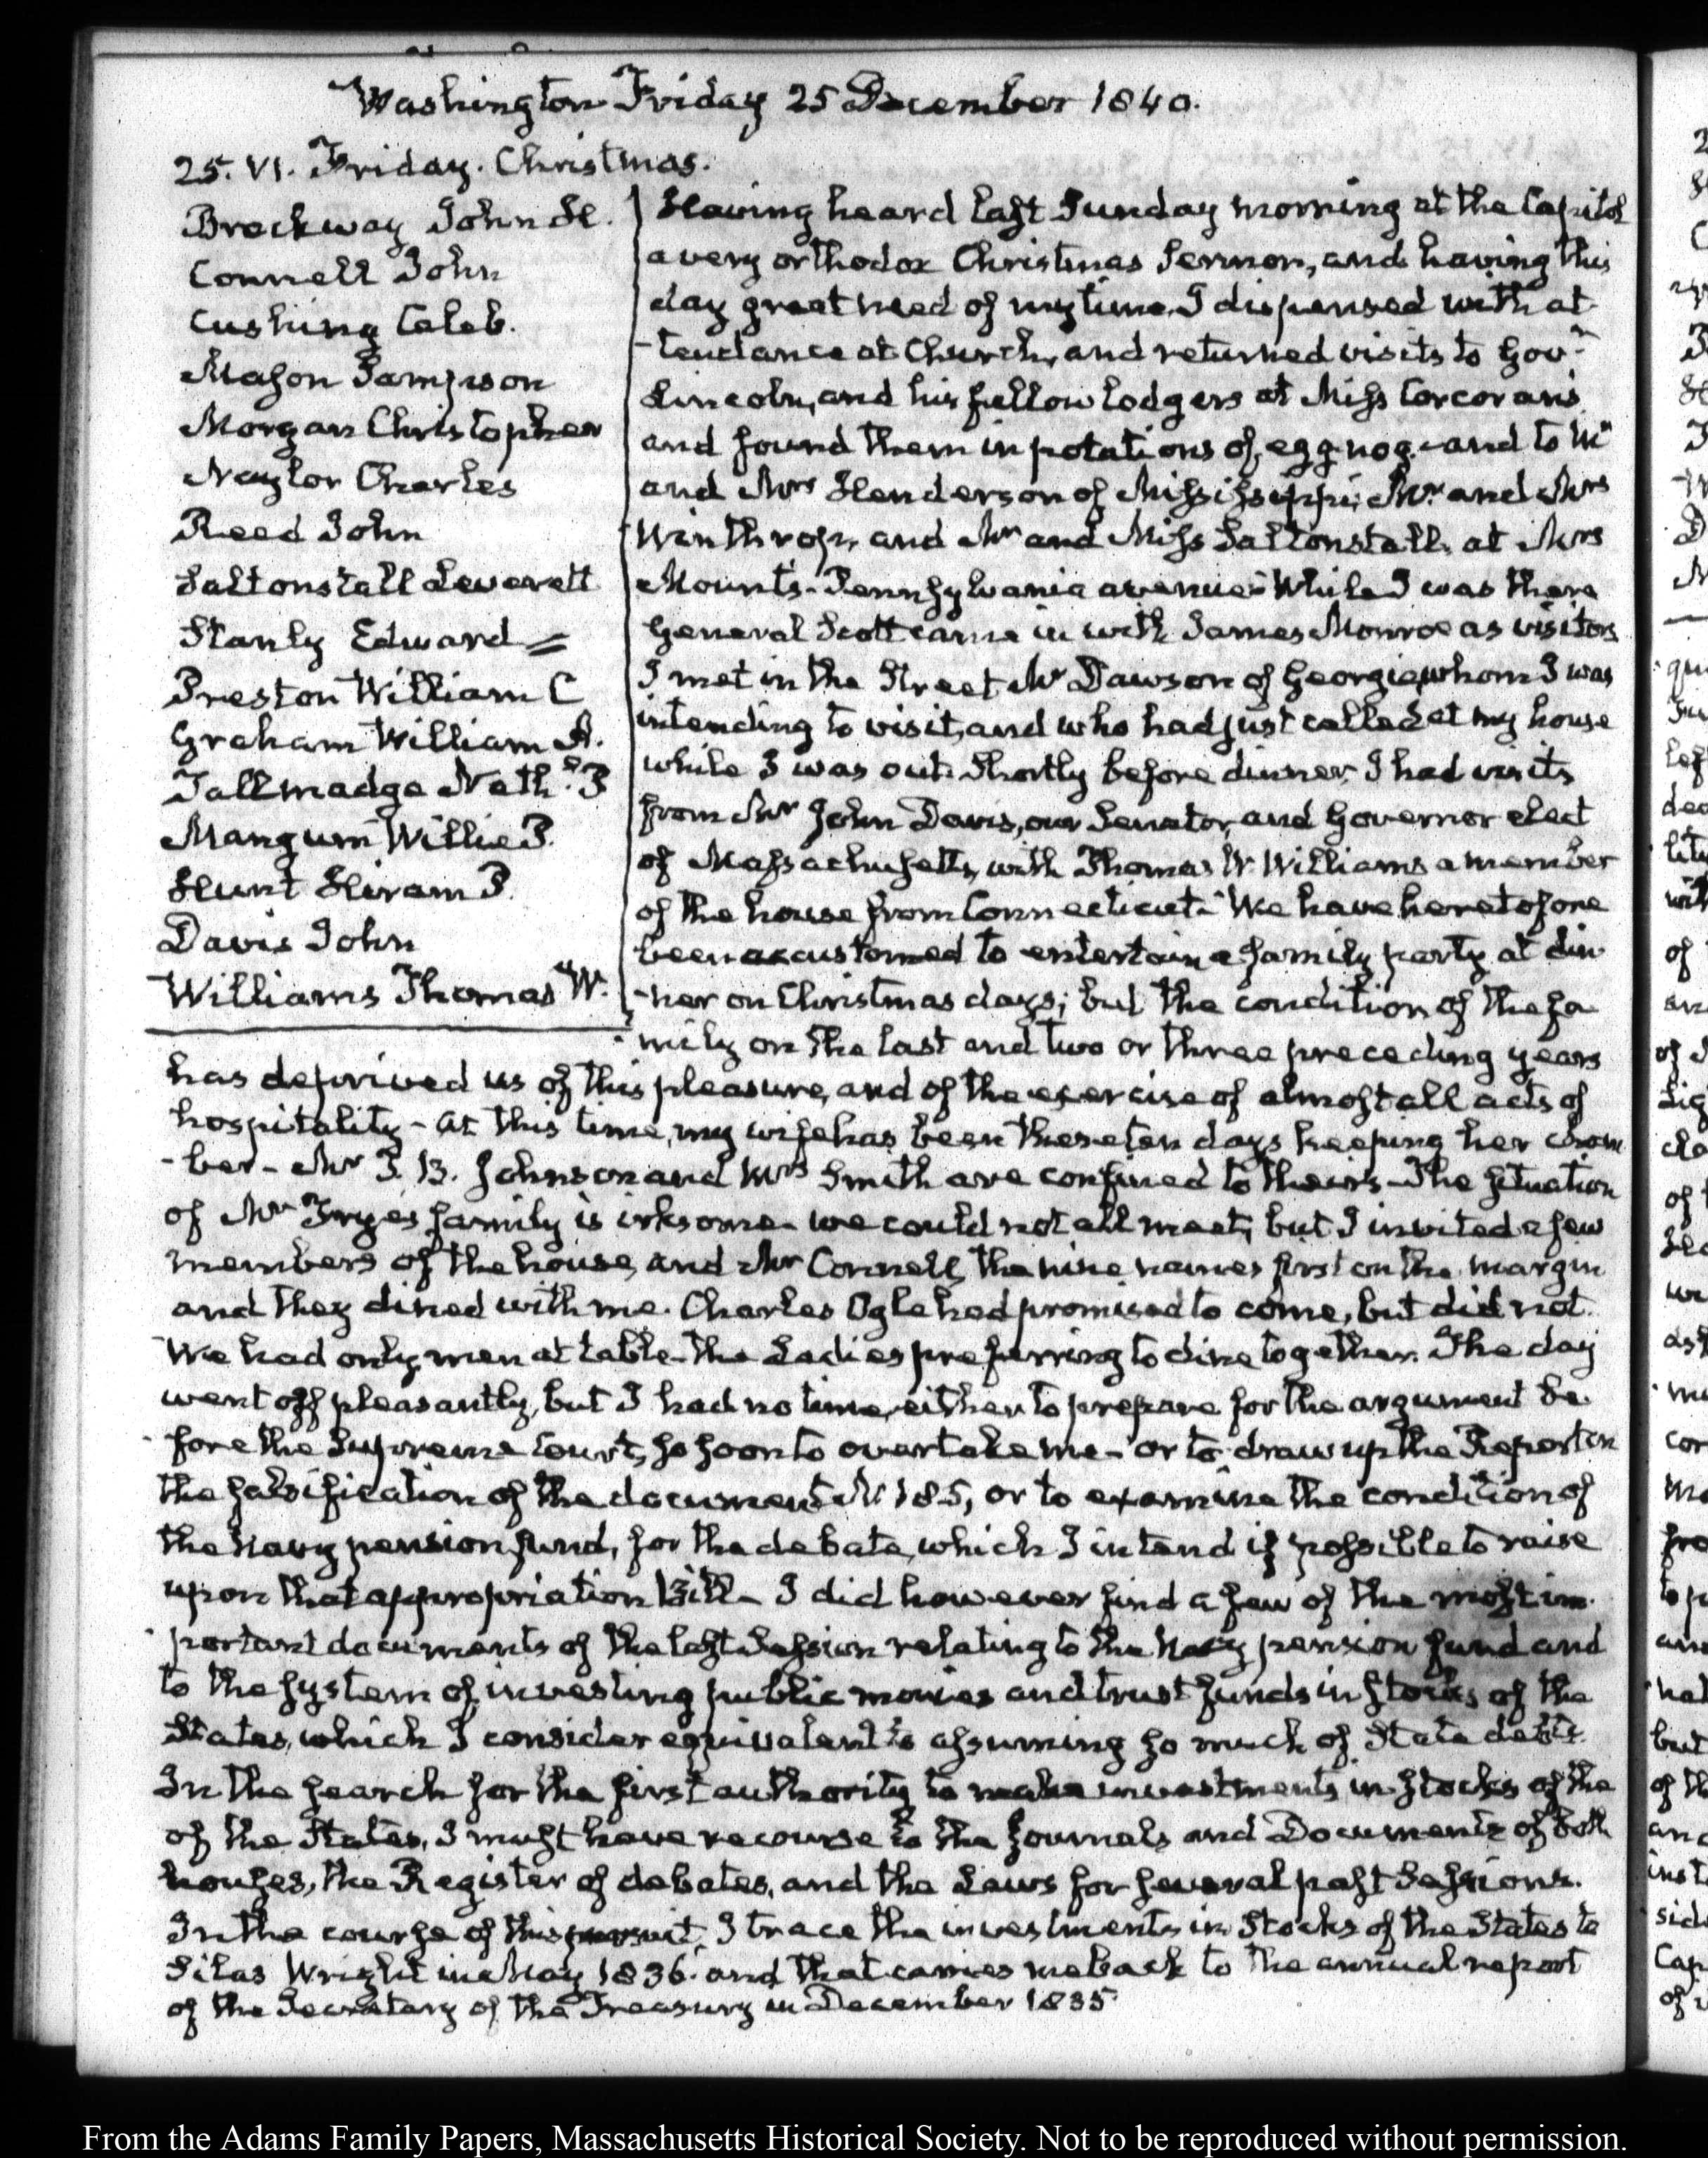 Washington Friday 25 December 1840.
25. VI. Friday. Christmas.
Brockway John H.
Connell John
Cushing Caleb.
Mason Sampson
Morgan Christopher
Naylor Charles
Reed John
Saltonstall Leverett
Stanly Edward =
Preston William C
Graham William A.
Tallmadge Nath.l P
Mangum Willie P.
Hunt Hiram P.
Davis John
Williams Thomas W.
Having heard last Sunday morning at the Capitol
a very orthodox Christmas Sermon, and having this
day great need of my time, I dispensed with at-
-tendance at Church, and returned visits to Gov.r
Lincoln, and his fellow lodgers at Miss Corcoran's
and found them in potations of egg-nog - and to Mr
and Mrs Henderson of Mississippi, Mr and Mrs
Winthrop, and Mr and Miss Saltonstall, at Mrs
Mount's - Pennsylvania avenue - While I was there
General Scott came in with James Monroe as visitors
I met in the Street Mr Dawson of Georgia, whom I was
intending to visit, and who had just called at my house
while I was out. Shortly before dinner, I had visits
from Mr John Davis, our Senator, and Governor elect
of Massachusetts, with Thomas W. Williams a member
of the house from Connecticut - We have heretofore
been accustomed to entertain a family party at din-
-ner on Christmas days; but the condition of the fa-
-mily on the last and two or three preceding years
has deprived us of this pleasure, and of the exercise of almost all acts of
hospitality - at this time, my wife has been these ten days keeping her cham-
-ber - Mr T. B. Johnson and Mrs Smith are confined to theirs - The situation
of Mr Frye's family is irksome - we could not all meet; but I invited a few
members of the house, and Mr Connell, the nine names first on the margin
and they dined with me. Charles Ogle had promised to come, but did not.
We had only men at table - the Ladies preferring to dine together. The day
went off pleasantly, but I had no time, either to prepare for the argument be-
-fore the Supreme Court, so soon to overtake me - or to draw up the Report on
the falsification of the document N. 185, or to examine the condition of
the Navy pension fund, for the debate, which I intend if possible to raise
upon that appropriation Bill - I did however find a few of the most im-
-portant documents of the last Session relating to the Navy pension fund and
to the system of investing public monies and trust funds in stocks of the
States, which I consider equivalent to assuming so much of State debts.
In the search for the first authority to make investments in stocks of the
of the States, I must have recourse to the Journals and Documents of both
houses, the Register of debates, and the Laws for several past Sessions.
In the course of this pursuit, I trace the investments in Stocks of the States to
Silas Wright in May 1836. and that carries me back to the annual report
of the Secretary of the Treasury in December 1835.
From the Adams Family Papers, Massachusetts Historical Society. Not to be reproduced without permission.